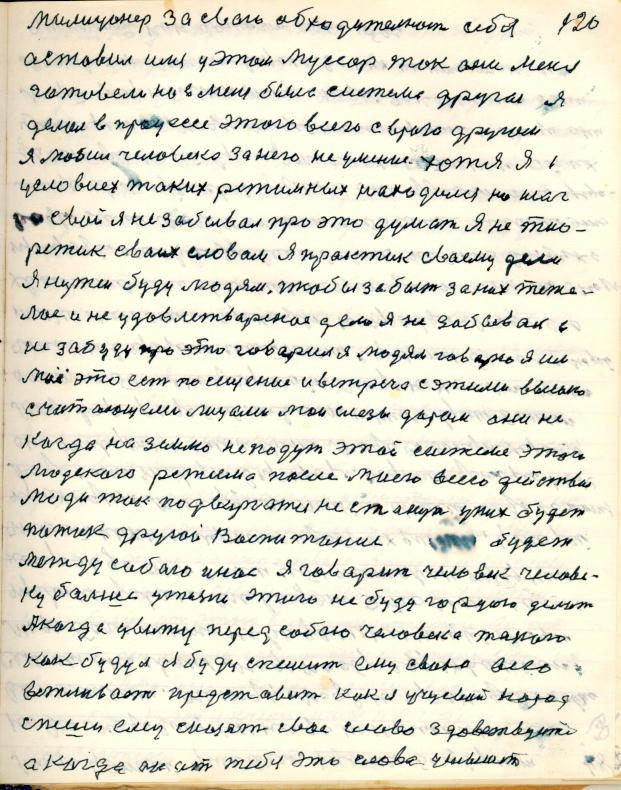 милицонер за свою обходителност себя 120
аставил имя у этом муссор так они меня
гатовели но в меня была система другая я
делал в процессе этого всего с врага другом
я любил человека за него не умение хотя я
условиех таких режимных находился но шаг
свой я не забывал про это думат я не тио-
ретик своих словам я практик своему делу
я нужен буду людям, чтобы забыт за них тяже-
лое и не удовлетварёное дело я не забывал
не забуду про это говарил я людям говарю я им
моё это ест посещение и встреча с этими высоко
считающеми лицами мои слезы даром они не
когда на землю не подут этой системе этого
людского режима после моего всего действия
люди так подвергатся не станут у них будет
паток другой Воспитание будет
между сабою инос я говарит человек челове-
ку балше у жизни этого не буду гордою делат
А когда увижу перед собаю человека такого
как буду я я буду спешит ему свою всю
вежливаст представит как я учусвой народ
спешу ему сказат свое слово здравствуйте
а когда он от тебя это слова услышит